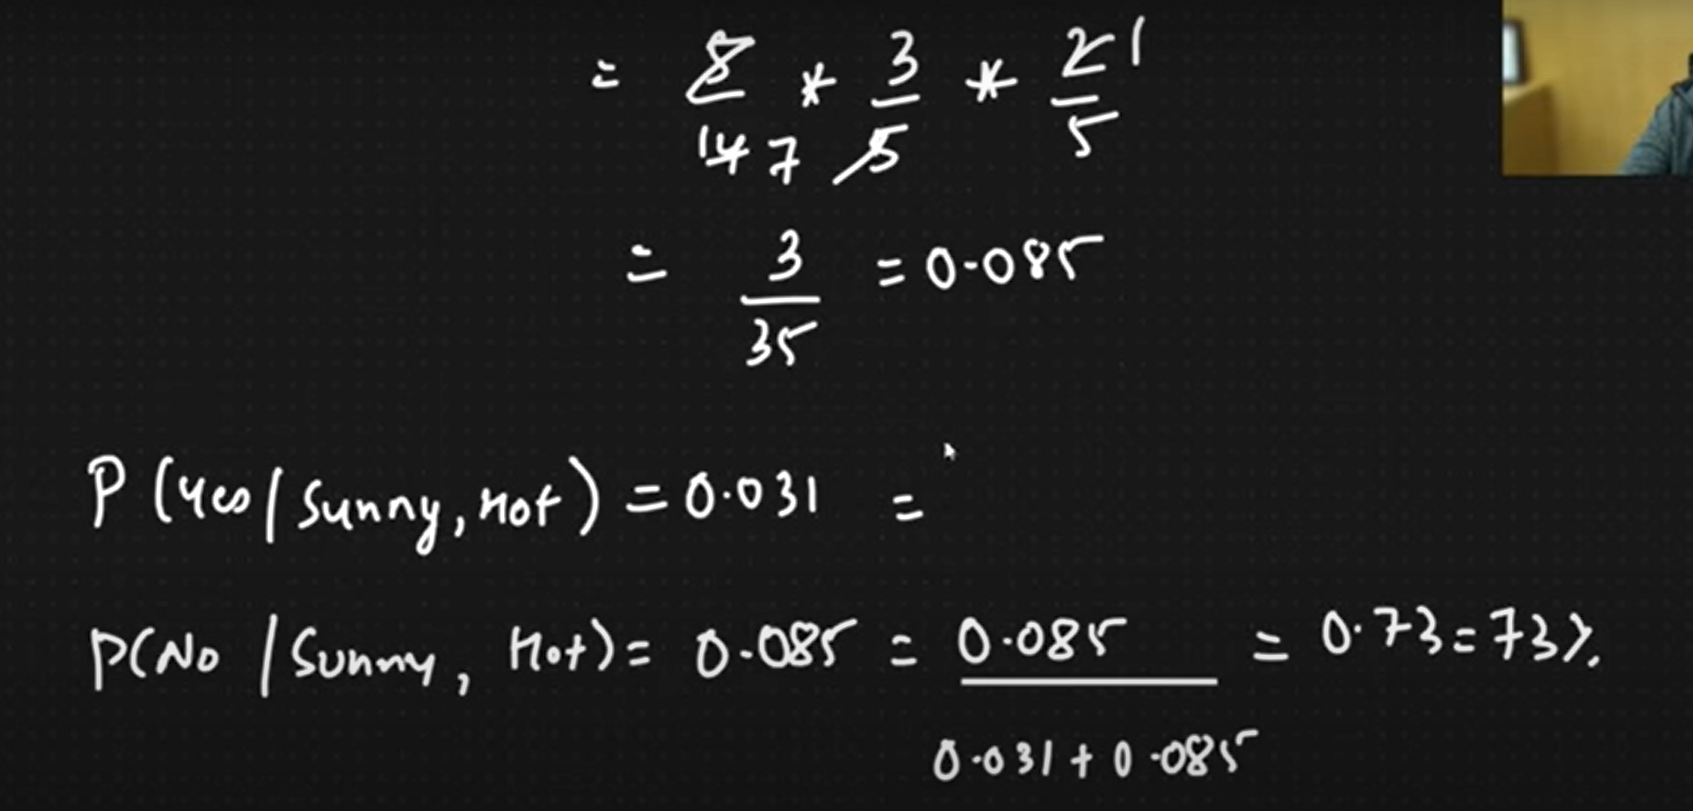 = 5/14 7 * 3/5 * 2 1/5
= 3/35 = 0.085
P (Yes / Sunny, Hot) = 0.031 =
P(No / Sunny, Hot) = 0.085 = 0.085 / 0.031 + 0.085 = 0.73 = 73%.